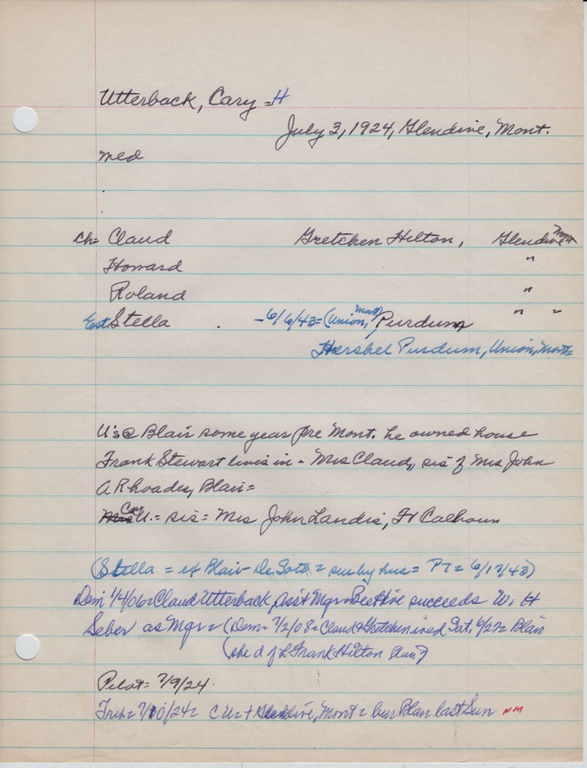 Utterback, Cary = H
July 3, 1924, Glendive, Mont.
med
ch= Claud Gretchen Hilton, Glendive Mont
Howard "
Roland "
Stella - 6/6/43 = (Union, Mont) Purdum " "
Hershel Purdum, Union, Mont=
U's @ Blair some year pre Mont. he owned house
Frank Stewart lives in - Mrs Claud, sis of Mrs John
A Rhoades, Blair=
U. = sis = Mrs John Landis, Ft Calhoun
(Stella = Blair - De Soto = sur by hus = PT = 6/17/43)
Dem 1/4/06 = Claud Utterback, Ass't Mgr = Beehive succeeds W. H
Seber as Mgr = (Dem = 7/2/08 = Claud & Gretchen Sat. 6/27 = Blair
(she d of L Frank Hilton
Pilot = 7/9/24
7/10/24 = C U = Glendive, Mont = bur Blair last Sun NM